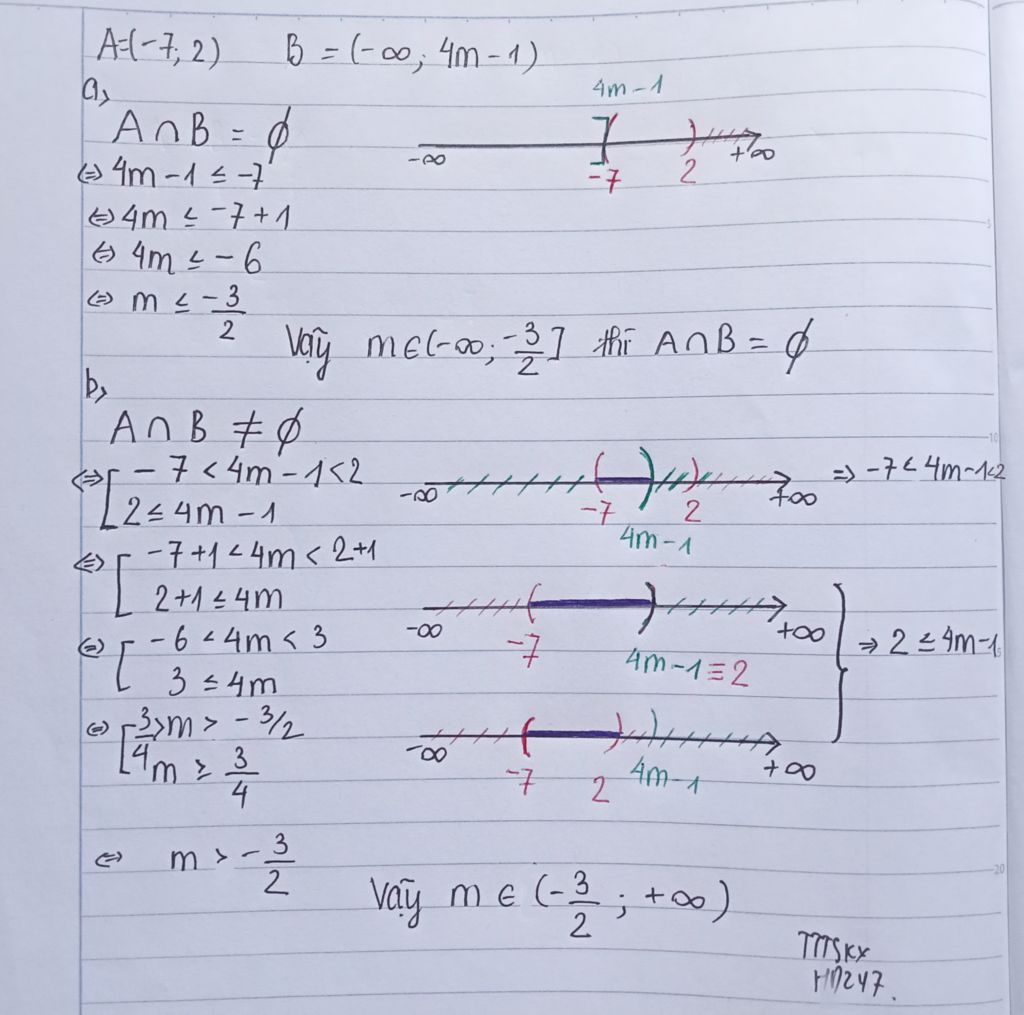 A=(-7; 2) B = (-∞; 4m-1)
a,
A∩B = ∅
4m-1
-∞ -7 2 +∞
⇔ 4m-1 ≤ -7
⇔ 4m ≤ -7+1
⇔ 4m ≤ -6
⇔ m ≤ -3/2
Vậy m∈(-∞; -3/2] thì A∩B = ∅
b,
A∩B ≠ ∅
⇔ [ -7 < 4m-1 < 2
2 ≤ 4m-1
-∞ -7 2 +∞ ⇒ -7 < 4m-1 < 2
4m-1
⇔ [ -7+1 < 4m < 2+1
2+1 ≤ 4m
-∞ -7 4m-1 ≡ 2 +∞
⇔ [ -6 < 4m < 3
3 ≤ 4m
} ⇒ 2 ≤ 4m-1
⇔ [ 3/4 > m > -3/2
m ≥ 3/4
-∞ -7 2 4m-1 +∞
⇔ m > -3/2
Vậy m ∈ (-3/2; +∞)
TTTSKX
HD247.